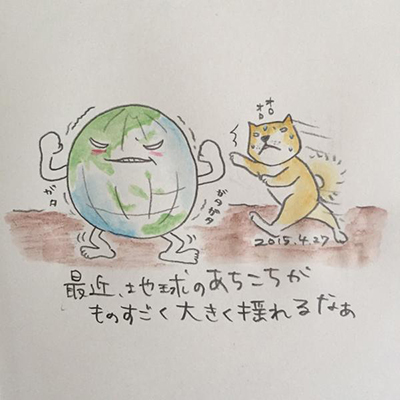 ガタ
ガタガタ
2015.4.27
最近、地球のあちこちが
ものすごく大きく揺れるなぁ